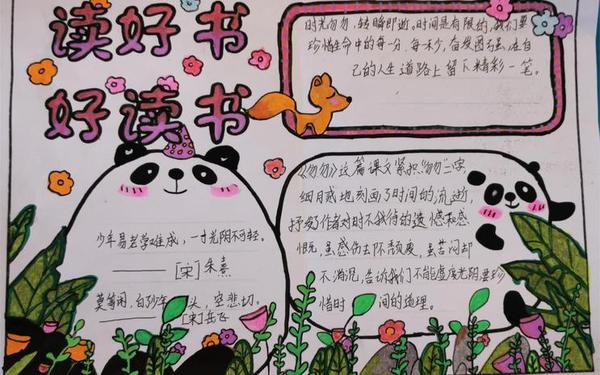 读好书
好读书
时光匆匆，转瞬即逝。时间是有限的，我们要
珍惜生命中的每一分，每一秒，奋发图强，在自
己的人生道路上留下精彩一笔。
少年易老学难成，一寸光阴不可轻。
——[宋]朱熹
莫等闲，白了少年头，空悲切。
——[宋]岳飞
《匆匆》这篇课文紧扣“匆匆”二字，
细月贰地刻画了时间的流逝，
抒发了作者对时不我待的遗憾和感
慨，虽感伤却不颓废，虽苦闷却
不消沉，告诉我们不能虚度光阴，要珍
惜时间的道理。